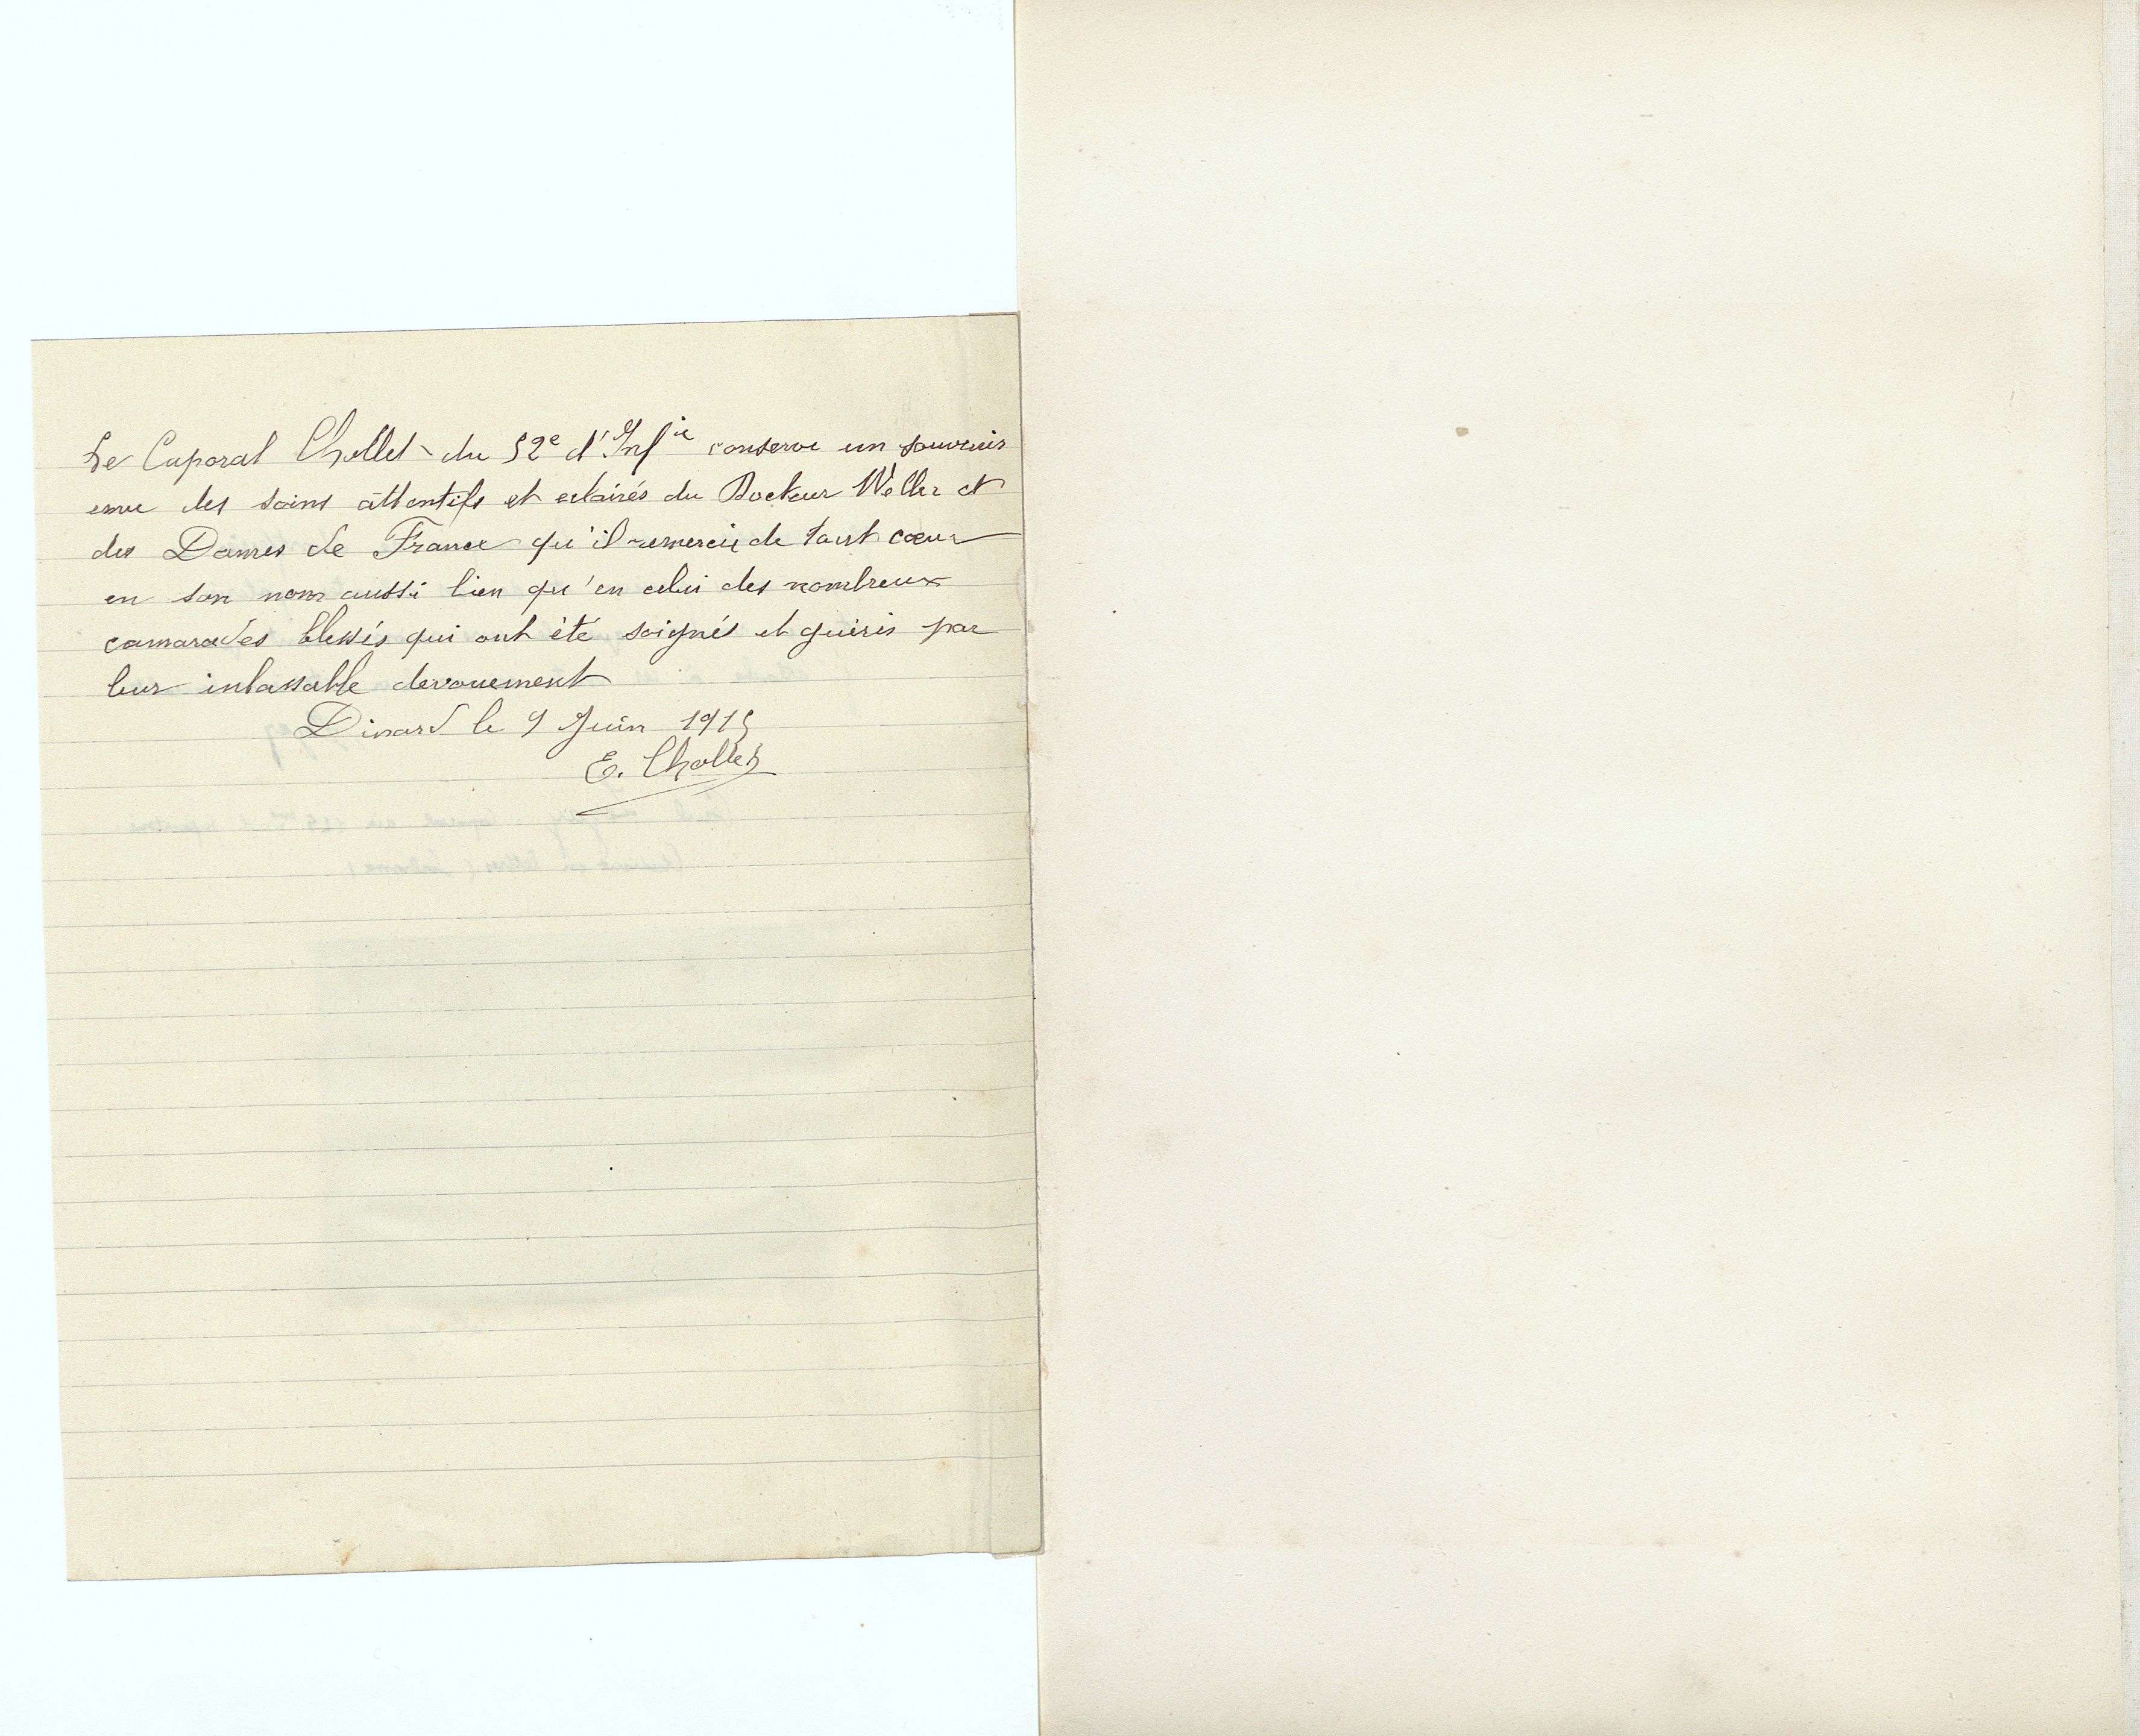 Le Caporal Chollet du 52e d'Infie conserve un souvenir
emu des soins attentifs et eclairés du Docteur Weller et
des Dames de France qu'il remercie de tout cœur
en son nom aussi bien qu'en celui des nombreux
camarades blessés qui ont été soignés et guéris par
leur inlassable devouement
Dinard le 9 Juin 1915
E. Chollet